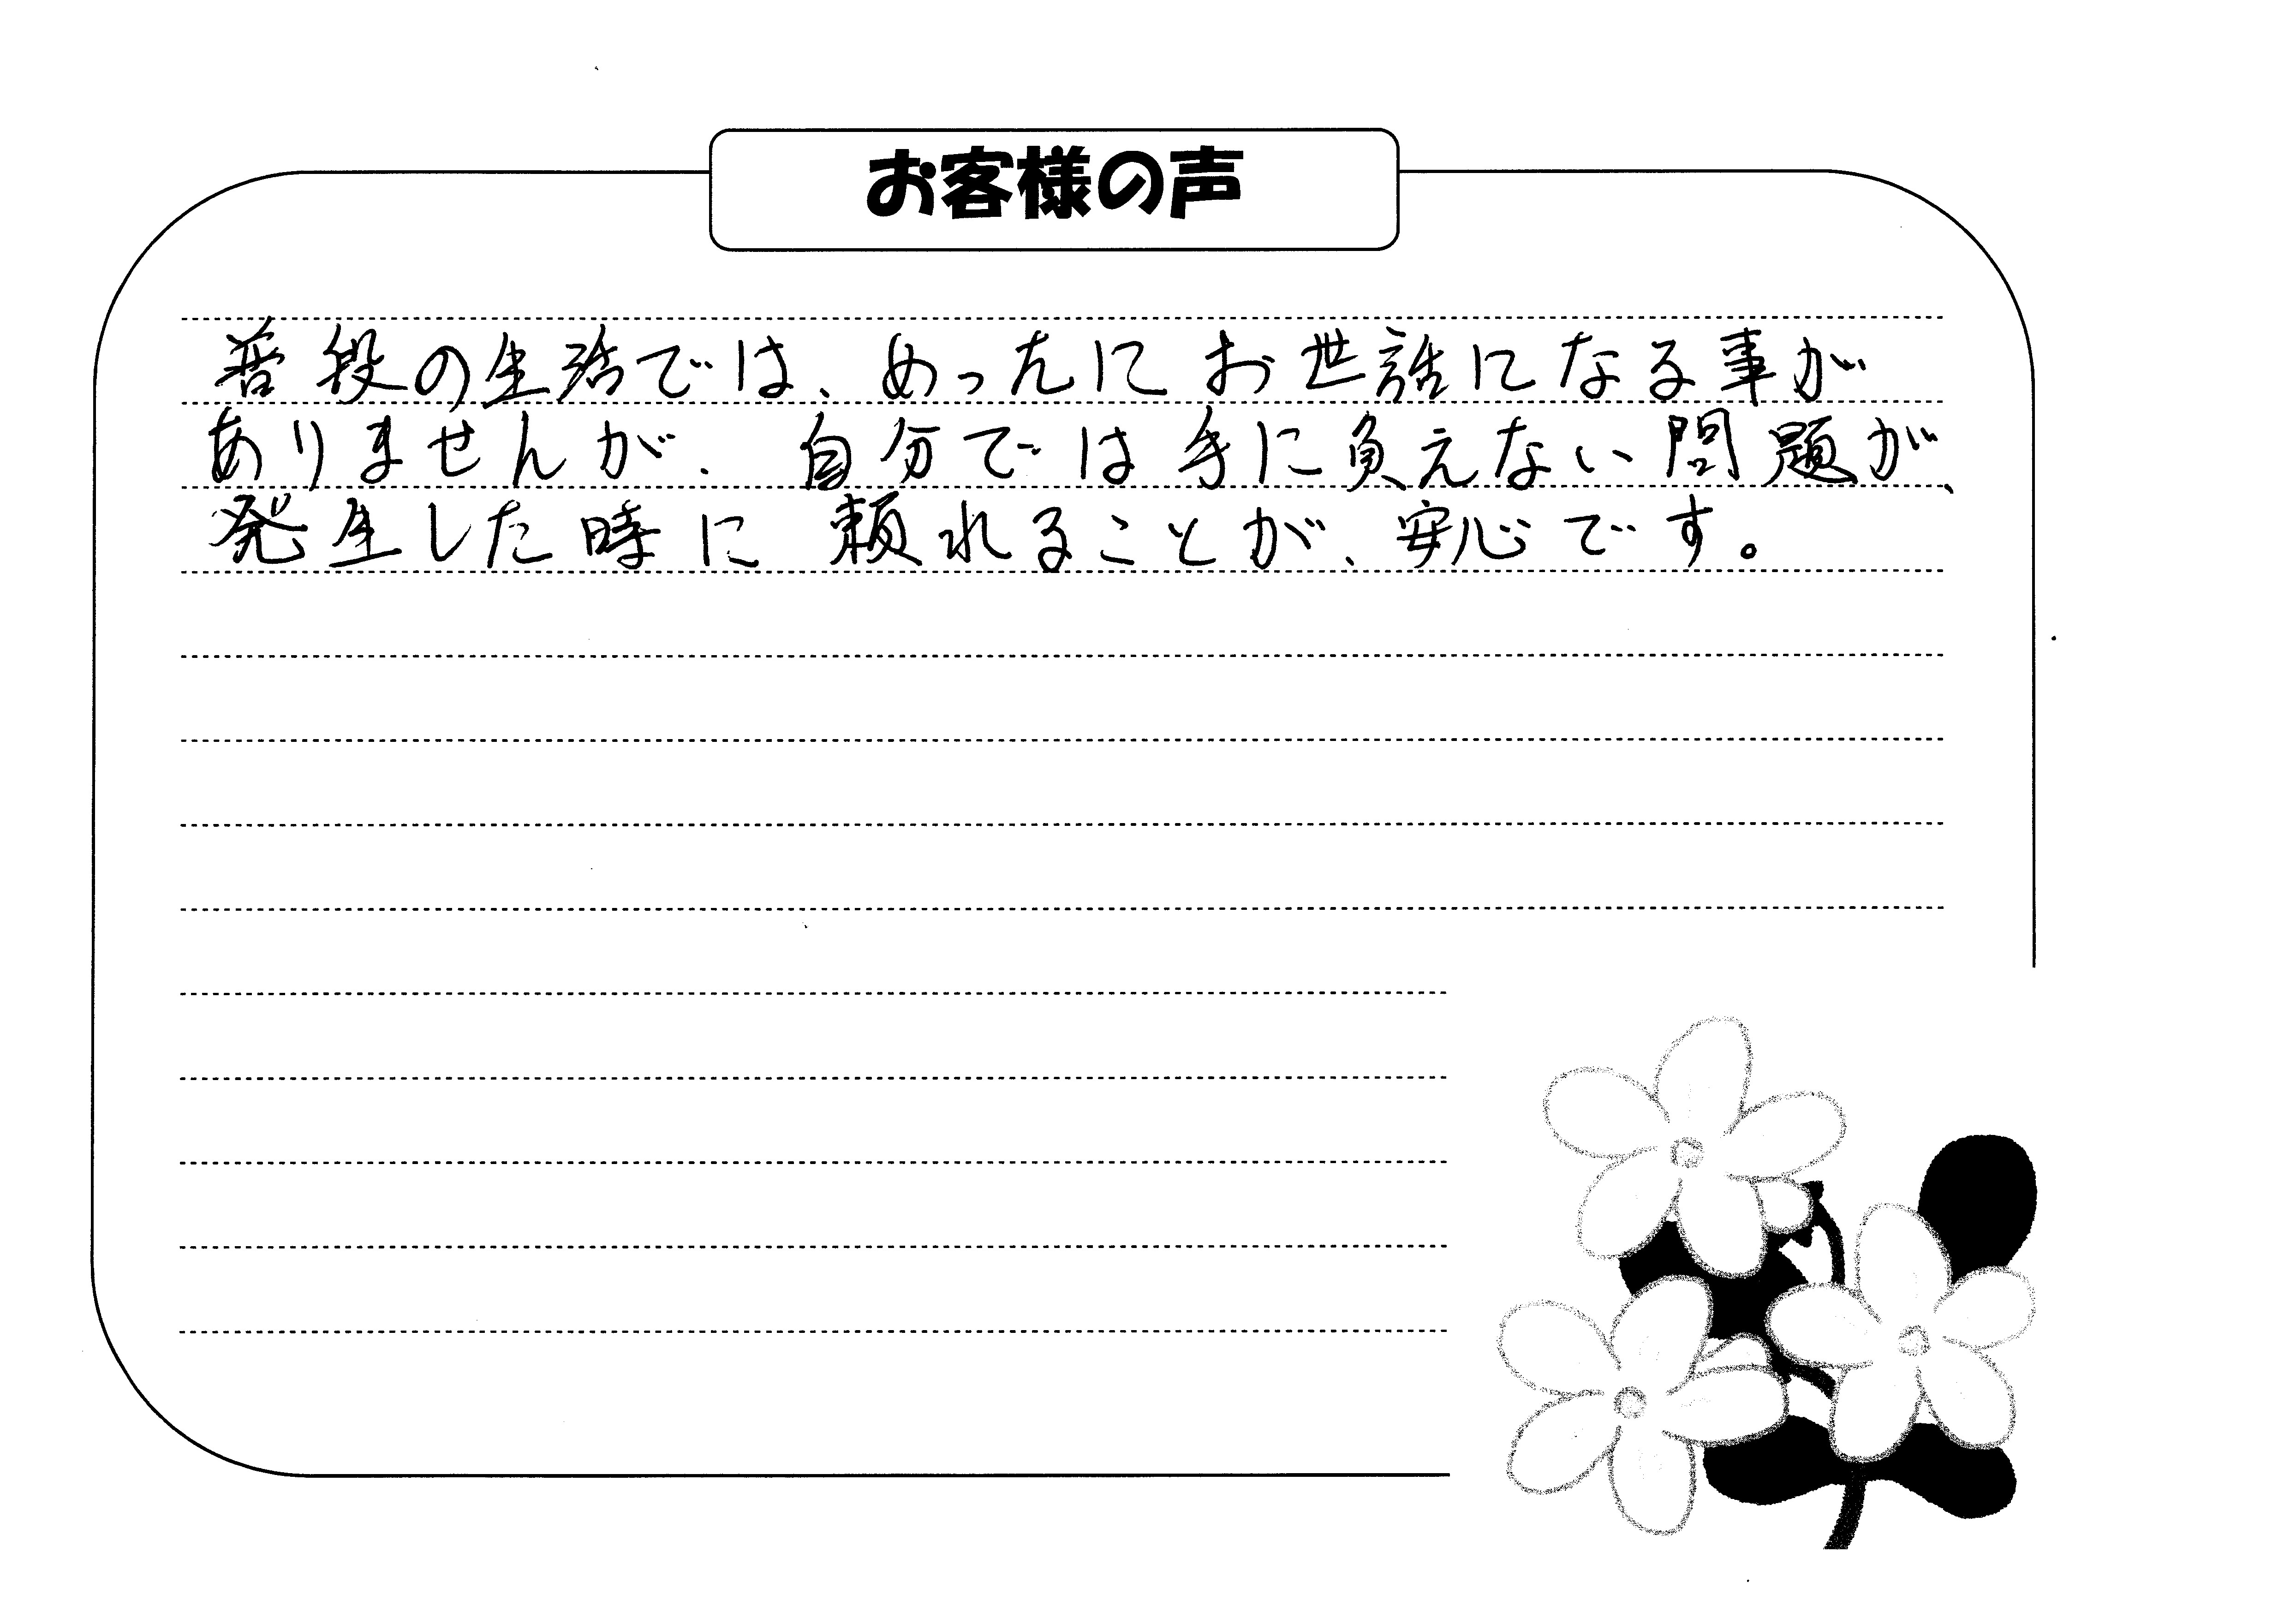 お客様の声
普段の生活では、めったにお世話になる事が
ありませんが、自分では手に負えない問題が、
発生した時に頼れることが、安心です。